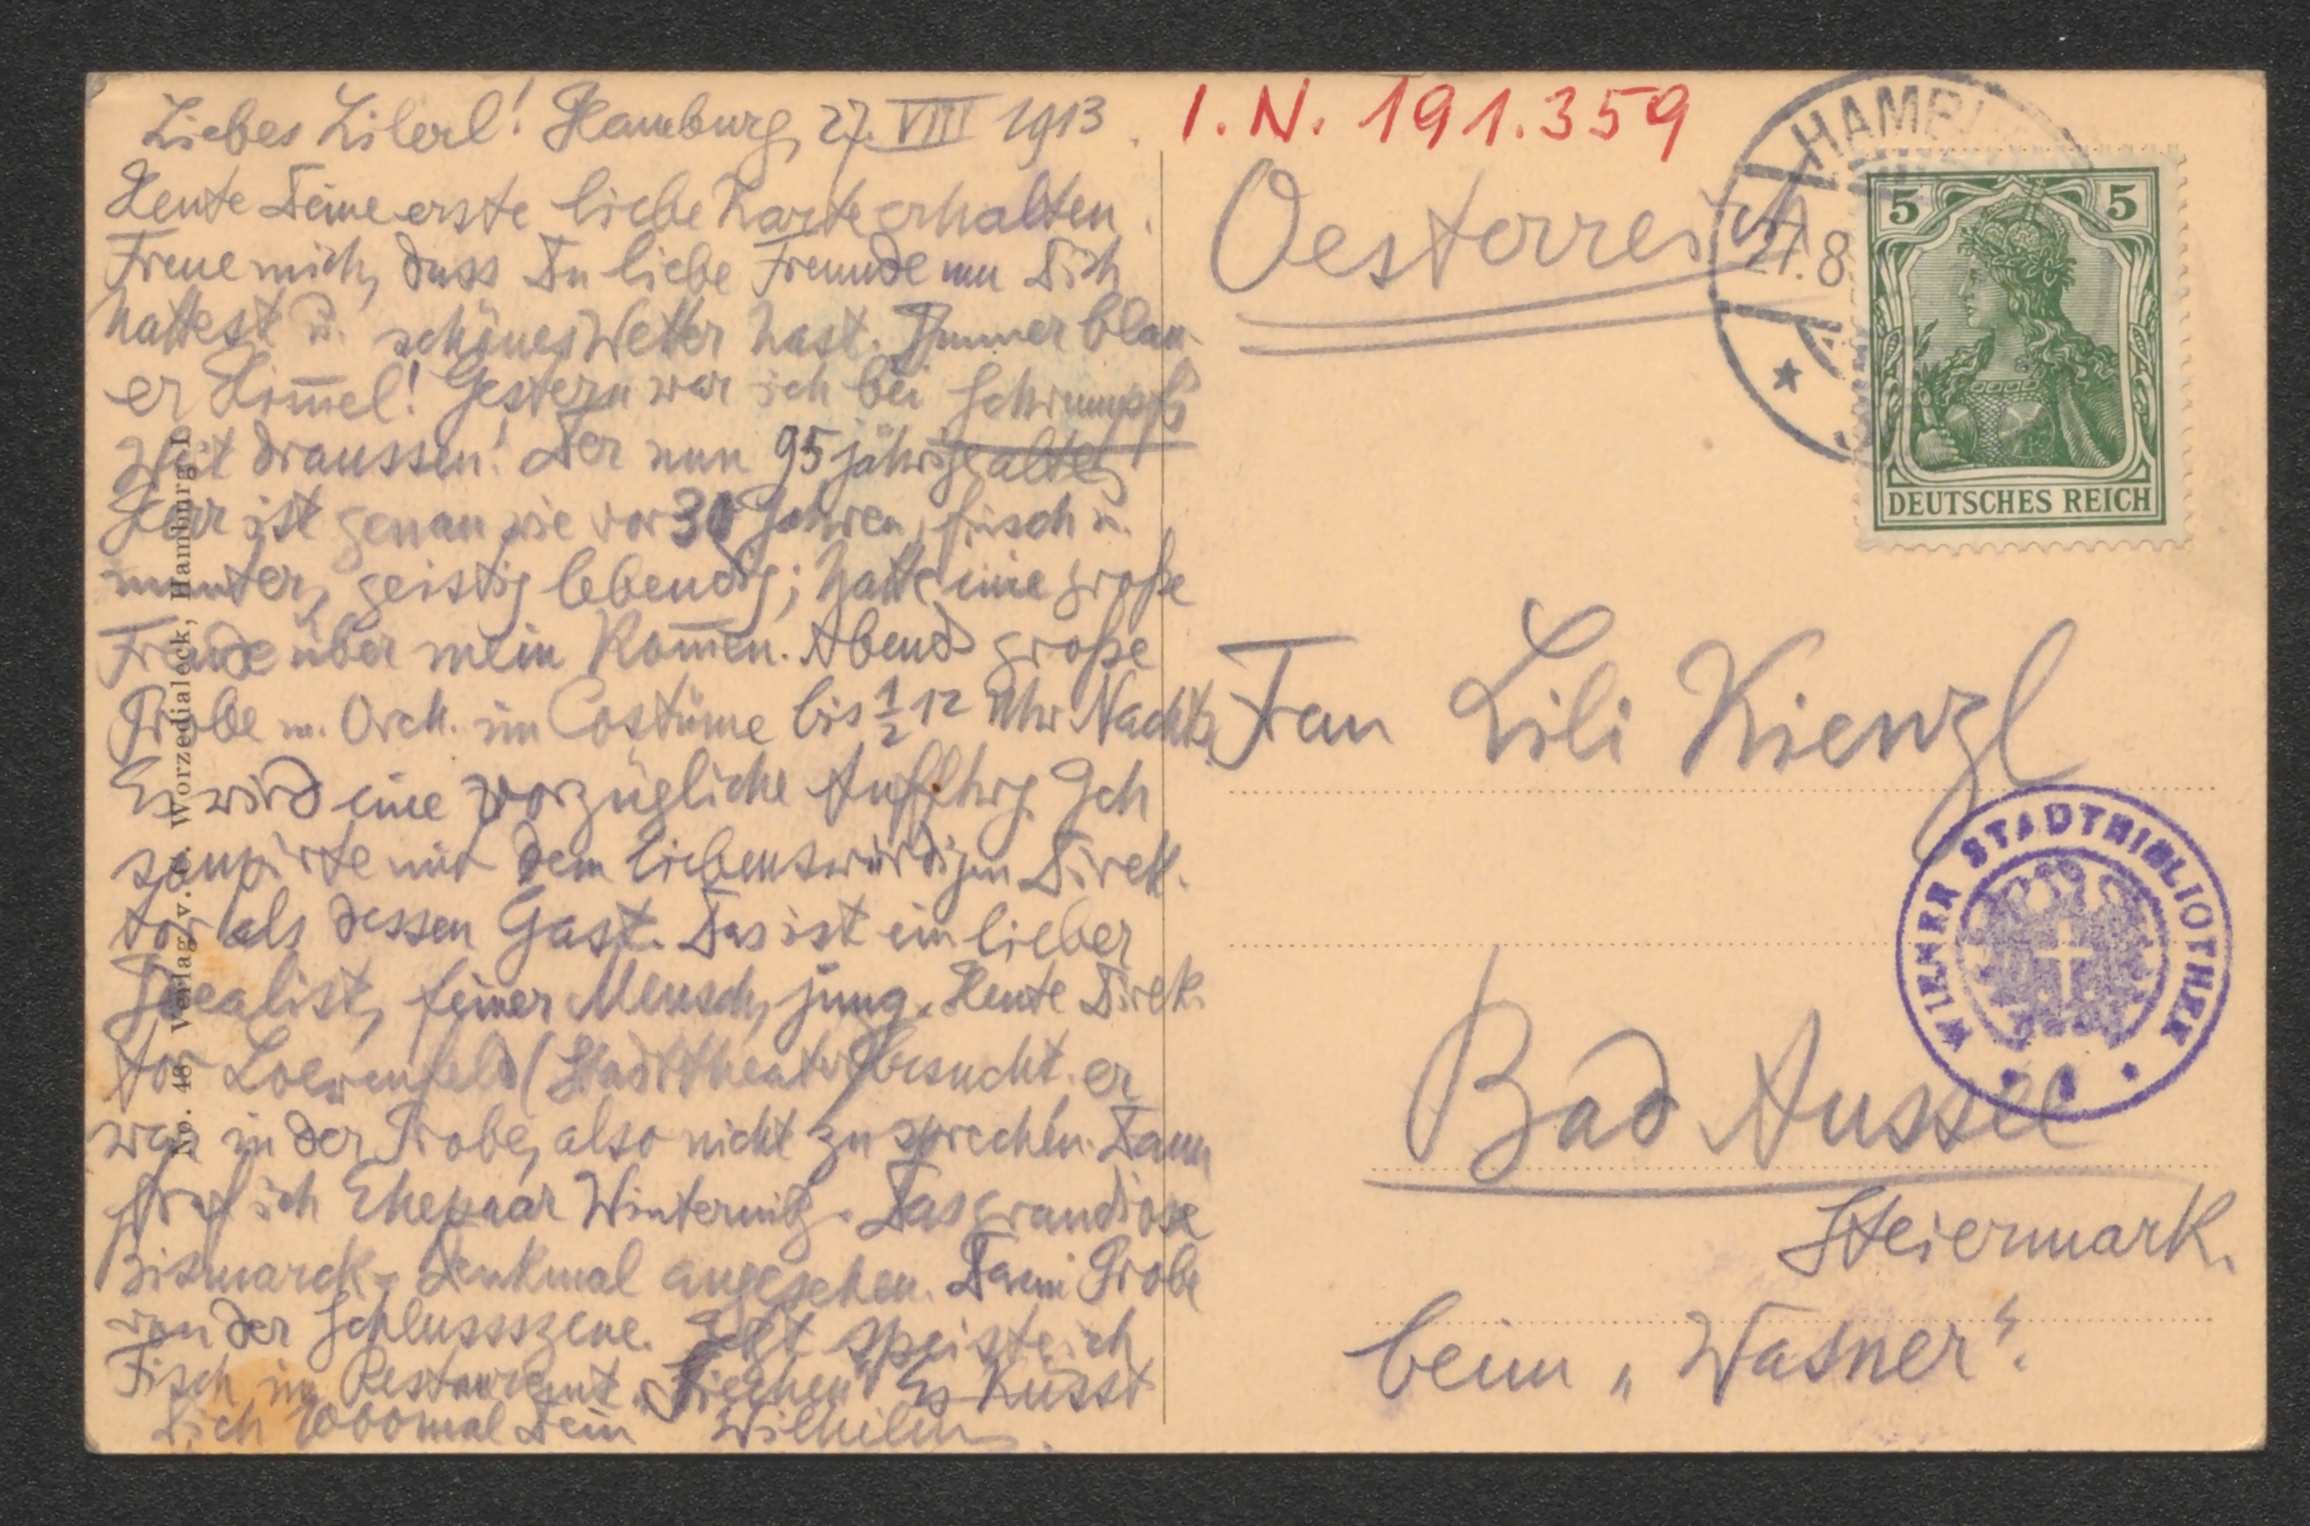 Liebes Lilerl! Hamburg, 27. VIII 1913.
Heute Deine erste liebe Karte erhalten.
Freue mich, dass Du liebe Freunde um Dich
hattest u. schönes Wetter hast. Immer blau-
er Him̄el! Gestern war ich bei Schrumpfs
weit draussen! Der nun 95 jährige alte
Herr ist genau wie vor 30 Jahren, frisch u.
munter, geistig lebendig; hatte eine große
Freude über mein Kom̄en. Abends große
Probe m. Orch. im Costüme bis ½ 12 Uhr Nachts
Es wird eine vorzügliche Auffhrg. Ich
soupirte mit dem liebenswürdigen Direk-
tor als dessen Gast. Das ist ein lieber
Idealist, feiner Mensch, jung. Heute Direk-
tor Loewenfeld (Stadttheater) besucht. er
war in der Probe, also nicht zu sprechen. Dann
traf ich Ehepaar Winternitz. Das grandiose
Bismarck-Denkmal angesehen. Dann Probe
von der Schlussszene. Jetzt speiste ich
Fisch im Restaurant. Es küsst
Dich 1000mal Dein Wilhelm.
No. 48. Verlag v. Worzedialeck, Hamburg 1
I.N. 191.359
Oesterreich
HAMBURG
27.8
5 5
DEUTSCHES REICH
Frau Lili Kienzl
WIENER STADTBIBLIOTHEK
Bad Aussee
Steiermark.
beim „Wasner".